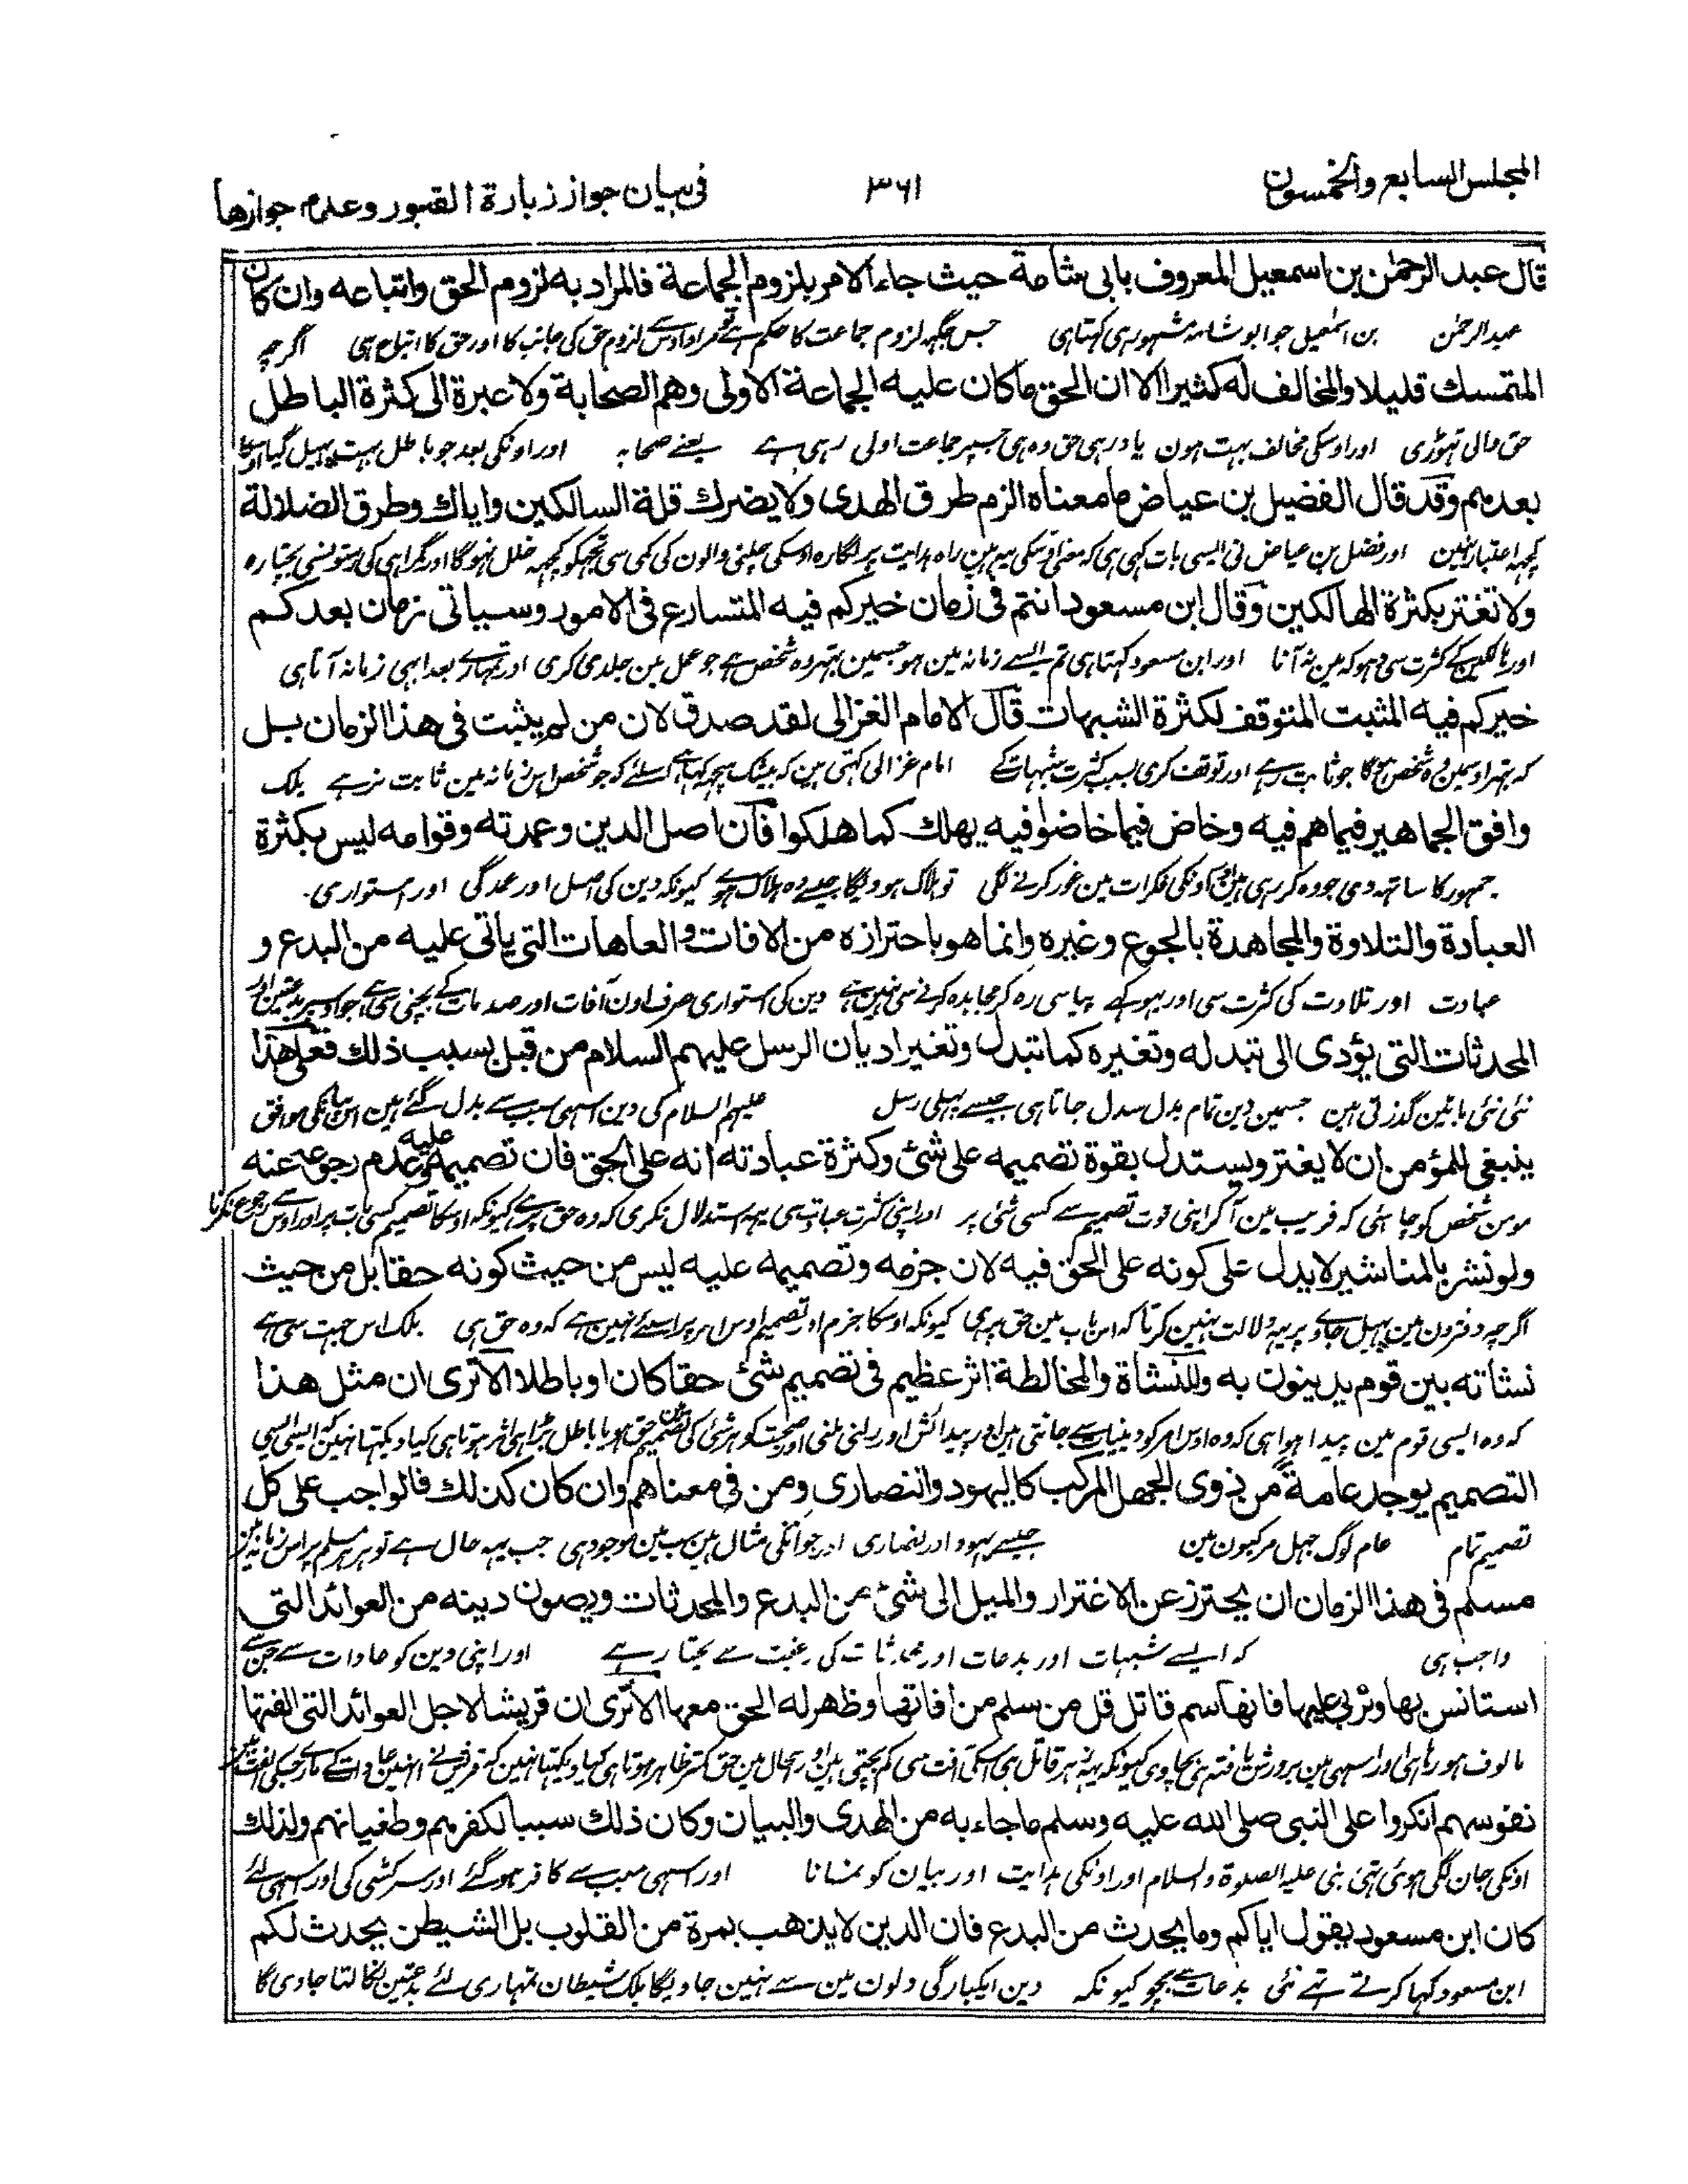 المجلس السابع والخمسون
٣٦١
في بيان جواز زيارة القبور وعدم جوازها
قال عبد الرحمٰن بن اسمعيل المعروف بابى شامة حيث جاء الامر بلزوم الجماعة فالمراد به لزوم الحق واتباعه وان كان
عبدالرحمٰن بن اسمٰعیل جو ابوشامہ مشہور ہی کہتا ہی جس جگہہ لزوم جماعت کا حکم ہے تو مراد اوس سے لزوم حق کی جانب کا اور حق کا اتباع ہی اگرچہ
المتمسك قليلا والمخالف له كثيرا الا ان الحق ما كان عليه الجماعة الاولى وهم الصحابة ولا عبرة الى كثرة الباطل
حق والی تہوڑی اور اوسکی مخالف بہت ہون یاد رہی حق وہ ہی جسپر جماعت اولی رہی ہے یعنے صحابہ اور اونکی بعد جو باطل بہت پہیل گیا اوسکا
بعدهم وقد قال الفضيل بن عياض ما معناه الزم طرق الهدى ولا يضرك قلة السالكين واياك وطرق الضلالة
کچہہ اعتبار نہین اور فضل بن عیاض نی ایسی بات کہی ہی کہ معنی اوسکی یہہ ہین راہ ہدایت پر لگا رہ اوسکی چلنی والون کی کمی سی تجہکو کچہہ خلل نہوگا اور گمراہی کی رستونسی بچتا رہ
ولا تغتر بكثرة الهالكين وقال ابن مسعود انتم فى زمان خيركم فيه المتسارع فى الامور وسياتى زمان بعدكم
اور ہالکین کے کثرت سی دہوکہ مین نہ آنا اور ابن مسعود کہتا ہی تم ایسے زمانہ مین ہو جسمین بہتر وہ شخص ہے جو عمل مین جلدی کری اور تمہارے بعد ایسی زمانہ آتا ہی
خيركم فيه المثبت المتوقف لكثرة الشبهات قال الامام الغزالى لقد صدق لان من لم يثبت فى هذا الزمان بل
کہ بہتر اوسمین وہ شخص ہوگا جو ثابت رہے اور توقف کری بسبب کثرت شبہات کے امام غزالی کہتی ہین کہ بیشک سچ کہا ہے اسلئے کہ جو شخص اس زمانہ مین ثابت نرہے بلک
وافق الجماهير فيما هم فيه وخاض فيما خاضوا فيه يهلك كما هلكوا فان اصل الدين وعمدته وقوامه ليس بكثرة
جمہور کا ساتہہ دی جو وہ کر رہی ہین اور اونکی فکرات مین غور کرنے لگی تو ہلاک ہوویگا جیسے وہ ہلاک ہوئے کیونکہ دین کی اصل اور عمدگی اور استواری
العبادة والتلاوة والمجاهدة بالجوع وغيره وانما هو باحترازه من الافات والعاهات التى ياتى عليه من البدع و
عبادت اور تلاوت کی کثرت سی اور بہوکے پیاسی رہ کر مجاہدہ کرنے سی نہین ہے دین کی استواری صرف اون آفات اور صدمات کے بچنی سی ہے جو اوسپر بدعتین اور
المحدثات التى يؤدى الى تبدله وتغيره كما تبدل وتغير اديان الرسل عليهم السلام من قبل بسبب ذلك فعلى هذا
نئی نئی باتین گذرتی ہین جسمین دین تمام بدل سدل جاتا ہی جیسے پہلی رسل علیہم السلام کی دین اسہی سبب سے بدل گئے ہین اس بیان کی موافق
ينبغى للمؤمن ان لا يغتر ويستدل بقوة تصميمه على شئ وكثرة عبادته انه على الحق فان تصميمه عليه وعدم رجوعه عنه
مومن شخص کو چاہئی کہ فریب مین آ کر اپنی قوت تصمیم سے کسی شئی پر اور اپنی کثرت عبادت سی یہہ استدلال نکری کہ وہ حق پر ہے کیونکہ اوسکا تصمیم کسی بات پر اور اوس سے رجوع نکرنا
ولو نشر بالمناشير لا يدل على كونه على الحق فيه لان جزمه وتصميمه عليه ليس من حيث كونه حقا بل من حيث
اگرچہ دفترون مین پہیل جاوے پر یہہ دلالت نہین کرتا کہ اس باب مین حق پر ہی کیونکہ اوسکا جزم اور تصمیم اوس امر پر اسلئے نہین ہے کہ وہ حق ہی بلک اس جہت سی ہے
نشاته بين قوم يدينون به وللنشاة والمخالطة اثر عظيم فى تصميم شئ حقا كان او باطلا الا ترى ان مثل هذا
کہ وہ ایسی قوم مین پیدا ہوا ہی کہ وہ اوس امر کو دینیات سے جانتی ہین اور پیدائش اور رلنی ملنی اور صحبت کو ہر شئ کی تصمیم مین حق ہو یا باطل بڑا ہی اثر ہوتا ہی کیا دیکہتا نہین کہ ایسی ایسی
التصميم يوجد عامة من ذوى الجهل المركب كاليهود والنصارى ومن فى معناهم وان كان كذلك فالواجب على كل
تصمیم تمام عام لوگ جہل مرکبون مین جیسے یہود اور نصاری اور جو انکی مثال ہین سب مین موجود ہی جب یہہ حال ہے تو ہر ہر مسلم پر اس زمانہ مین
مسلم فى هذا الزمان ان يحترز عن الاغترار والميل الى شئ من البدع والمحدثات ويصون دينه من العوائد التى
واجب ہی کہ ایسے شبہات اور بدعات اور محدثات کی رغبت سے بچتا رہے اور اپنی دین کو عادات سے جن سے
استانس بها وتربى عليها فانها سم قاتل قل من سلم من افاتها وظهر له الحق معها الا ترى ان قريشا لاجل العوائد التى الفتها
مالوف ہو رہا ہی اور اسہی مین پرورش یافتہ ہی بچاوی کیونکہ یہہ زہر قاتل ہی اسکی آفت سی کم بچتی ہین اور اسحال مین حق کمتر ظاہر ہوتا ہی کیا دیکہتا نہین کہ قریش نے انہین عادات کے مارے جسکی الفت مین
نفوسهم انكروا على النبى صلى الله عليه وسلم ما جاء به من الهدى والبيان وكان ذلك سببا لكفرهم وطغيانهم ولذلك
اونکی جان لگی ہوئی تہی نبی علیہ الصلوة والسلام اور اونکی ہدایت اور بیان کو نمانا اور اسہی سبب سے کافر ہو گئے اور سرکشی کی اور اسہی لئے
كان ابن مسعود يقول اياكم وما يحدث من البدع فان الدين لا يذهب بمرة من القلوب بل الشيطن يحدث لكم
ابن مسعود کہا کرتے تہے نئی بدعات سے بچو کیونکہ دین ایکبارگی دلون مین سے نہین جاویگا بلک شیطان تمہاری لئے بدعتین نکالتا جاوی گا